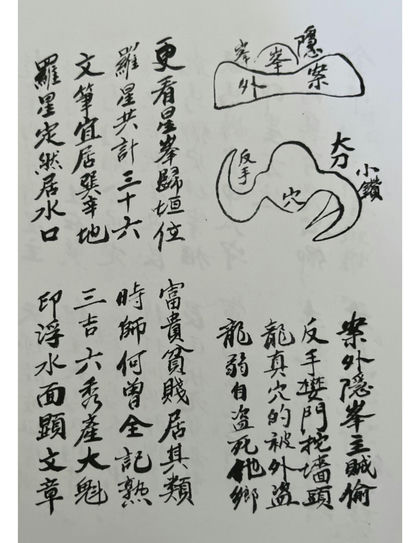 隱
峯
峯
案
外
大刀
小鑽
反手
穴
案外隱峯主賊偷
反手門挖墻頭
龍真穴的被外盗
龍弱自盗死他鄉
更看星峯歸垣位
富貴貧賤居其類
羅星共計三十六
時師何曾全記熟
文筆宜居巽辛地
三吉六秀產大魁
羅星定然居水口
印浮水面顯文章